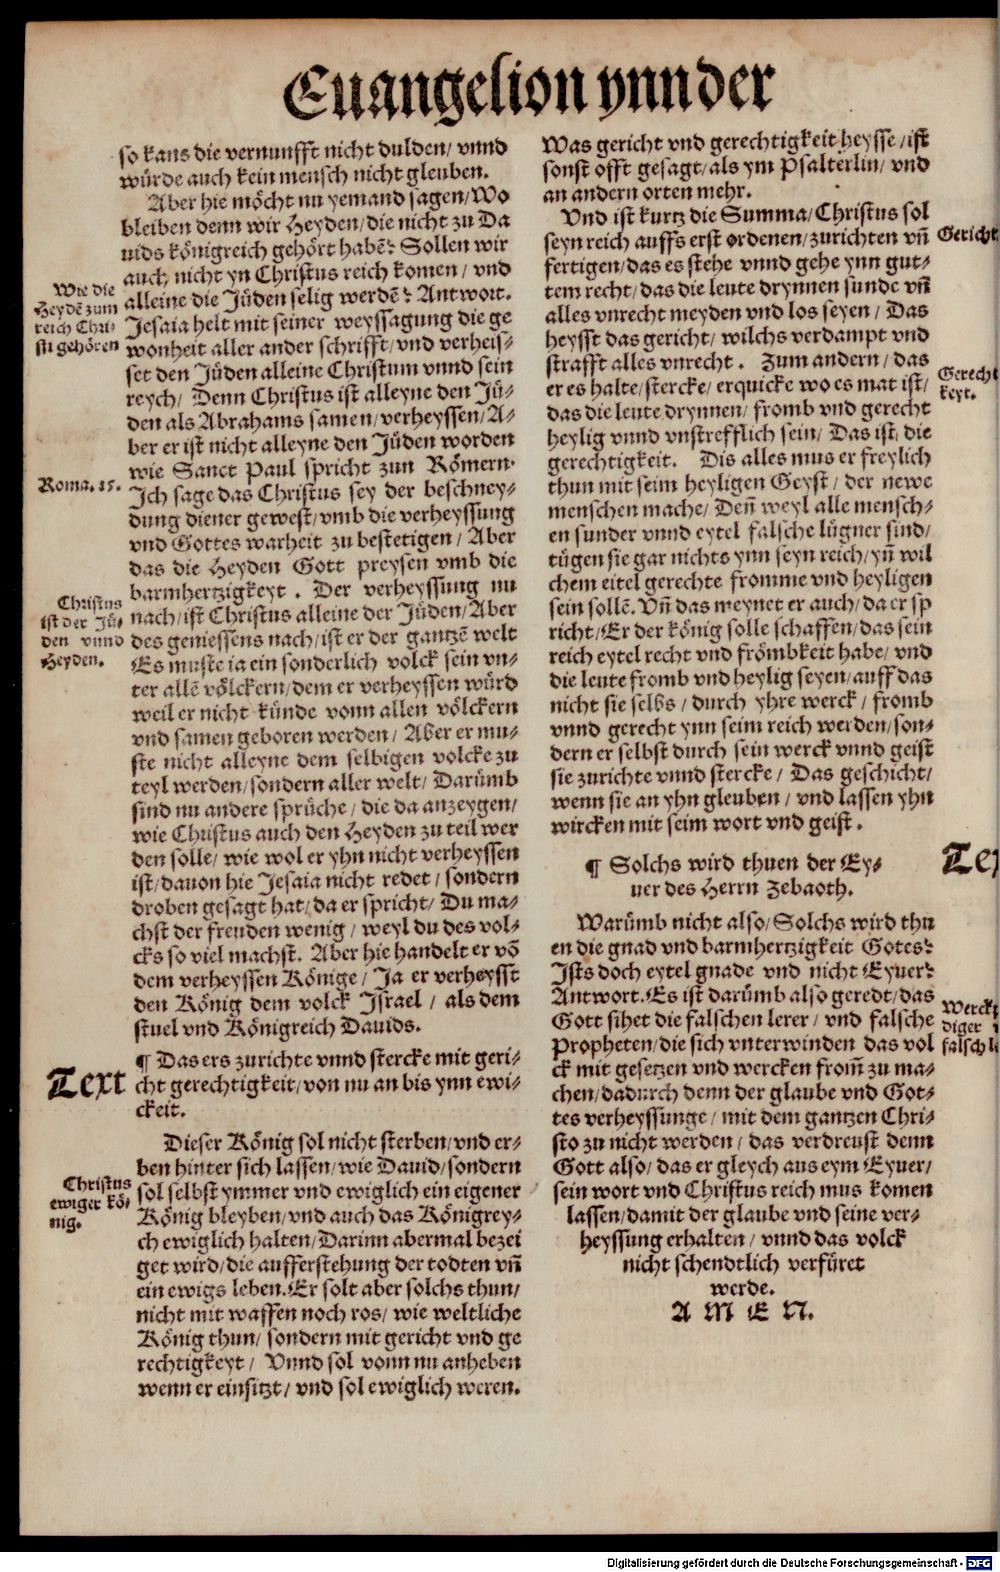 Euangelion ynn der
so kans die vernunfft nicht dulden/ vnnd
würde auch kein mensch nicht gleuben.
Aber hie möcht nu yemand sagen/ Wo
bleiben denn wir Heyden/ die nicht zu Da
uids königreich gehört habē? Sollen wir
auch nicht yn Christus reich komen/ vnd
alleine die Jüden selig werdē? Antwort.
Jesaia helt mit seiner weyssagung die ge
wonheit aller ander schrifft/ vnd verheis-
set den Jüden alleine Christum vnnd sein
reych/ Denn Christus ist alleyne den Jü-
den als Abrahams samen/ verheyssen/ A-
ber er ist nicht alleyne den Jüden worden
wie Sanct Paul spricht zun Römern.
Ich sage das Christus sey der beschney-
dung diener gewest/ vmb die verheyssung
vnd Gottes warheit zu bestetigen/ Aber
das die Heyden Gott preysen vmb die
barmhertzigkeyt. Der verheyssung nu
nach/ ist Christus alleine der Jüden/ Aber
des geniessens nach/ ist er der gantzē welt
Es muste ia ein sonderlich volck sein vn-
ter allē völckern/ dem er verheyssen würd
weil er nicht künde vonn allen völckern
vnd samen geboren werden/ Aber er mu-
ste nicht alleyne dem selbigen volcke zu
teyl werden/ sondern aller welt/ Darümb
sind nu andere sprüche/ die da anzeygen/
wie Christus auch den Heyden zu teil wer
den solle/ wie wol er yhn nicht verheyssen
ist/ dauon hie Jesaia nicht redet/ sondern
droben gesagt hat/ da er spricht/ Du ma-
chst der freuden wenig/ weyl du des vol-
cks so viel machst. Aber hie handelt er vō
dem verheyssen Könige/ Ja er verheysst
den König dem volck Israel/ als dem
stuel vnd Königreich Dauids.
¶ Das ers zurichte vnnd stercke mit geri-
cht gerechtigkeit/ von nu an bis ynn ewi-
ckeit.
Dieser König sol nicht sterben/ vnd er-
ben hinter sich lassen/ wie Dauid/ sondern
sol selbst ymmer vnd ewiglich ein eigener
König bleyben/ vnd auch das Königrey-
ch ewiglich halten/ Darinn abermal bezei
get wird/ die aufferstehung der todten vn̄
ein ewigs leben. Er solt aber solchs thun/
nicht mit waffen noch ros/ wie weltliche
König thun/ sondern mit gericht vnd ge
rechtigkeyt/ Vnnd sol vonn nu anheben
wenn er einsitzt/ vnd sol ewiglich weren.
Wie die
Heydē zum
reich Chri-
sti gehören
Roma. 15.
Christus
ist der Jü-
den vnnd
Heyden.
Text
Christus
ewiger kö-
nig.
Was gericht vnd gerechtigkeit heysse/ ist
sonst offt gesagt/ als ym Psalterlin/ vnd
an andern orten mehr.
Vnd ist kurtz die Summa/ Christus sol
seyn reich auffs erst ordenen/ zurichten vn̄
fertigen/ das es stehe vnnd gehe ynn gut-
tem recht/ das die leute drynnen sunde vn̄
alles vnrecht meyden vnd los seyen/ Das
heysst das gericht/ wilchs verdampt vnd
strafft alles vnrecht. Zum andern/ das
er es halte/ stercke/ erquicke wo es mat ist/
das die leute drynnen/ fromb vnd gerecht
heylig vnnd vnstrefflich sein/ Das ist/ die
gerechtigkeit. Dis alles mus er freylich
thun mit seim heyligen Geyst/ der newe
menschen mache/ Den̄ weyl alle mensch-
en sunder vnnd eytel falsche lügner sind/
tügen sie gar nichts ynn seyn reich/ yn̄ wil
chem eitel gerechte fromme vnd heyligen
sein sollē. Vn̄ das meynet er auch/ da er sp
richt/ Er der könig solle schaffen/ das sein
reich eytel recht vnd frömbkeit habe/ vnd
die leute fromb vnd heylig seyen/ auff das
nicht sie selbs/ durch yhre werck/ fromb
vnnd gerecht ynn seim reich werden/ son-
dern er selbst durch sein werck vnnd geist
sie zurichte vnnd stercke/ Das geschicht/
wenn sie an yhn gleuben/ vnd lassen yhn
wircken mit seim wort vnd geist.
¶ Solchs wird thuen der Ey-
uer des Herrn Zebaoth.
Warümb nicht also/ Solchs wird thu
en die gnad vnd barmhertzigkeit Gotes?
Ists doch eytel gnade vnd nicht Eyuer?
Antwort. Es ist darümb also geredt/ das
Gott sihet die falschen lerer/ vnd falsche
Propheten/ die sich vnterwinden das vol
ck mit gesetzen vnd wercken from̄ zu ma-
chen/ dadurch denn der glaube vnd Got-
tes verheyssunge/ mit dem gantzen Chri-
sto zu nicht werden/ das verdreust denn
Gott also/ das er gleych aus eym Eyuer/
sein wort vnd Christus reich mus komen
lassen/ damit der glaube vnd seine ver-
heyssung erhalten/ vnnd das volck
nicht schendtlich verfüret
werde.
A M E N.
Gericht
Gerecht
keyt.
Tex
Werckp
diger
falsch le
Digitalisierung gefördert durch die Deutsche Forschungsgemeinschaft - DFG